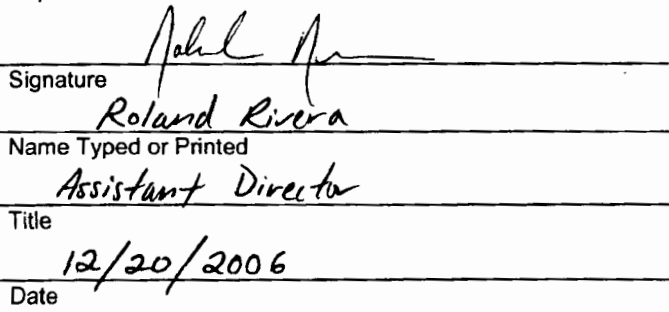 Signature
Roland Rivera
Name Typed or Printed
Assistant Director
Title
12/20/2006
Date